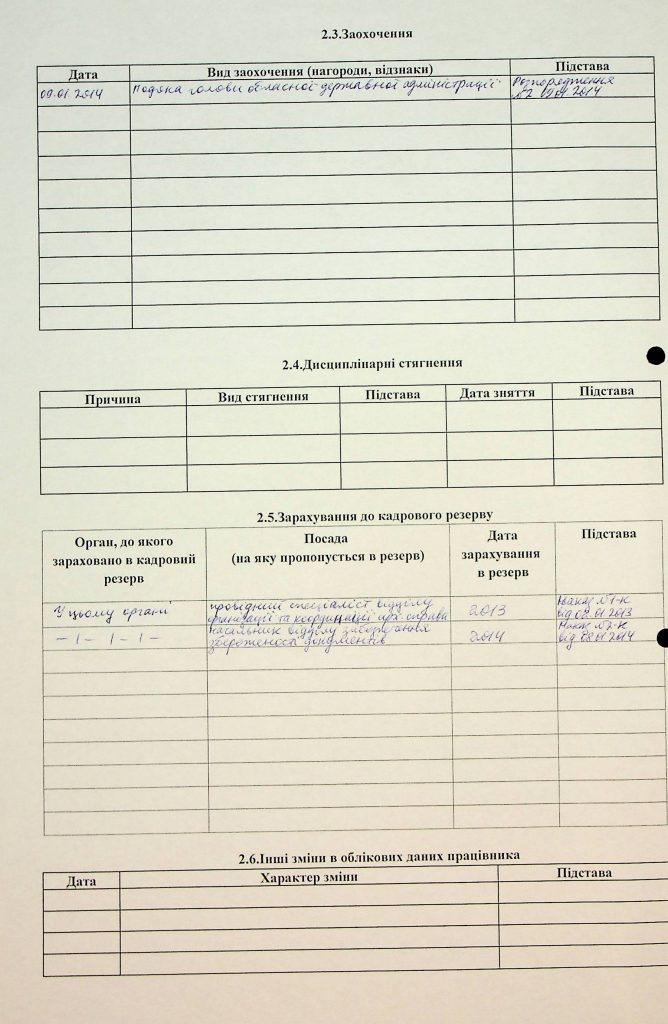 2.3.Заохочення
Дата Вид заохочення (нагороди, відзнаки) Підстава
09.01.2014 Подяка голови обласної державної адміністрації Розпорядження
№2 2014
2.4.Дисциплінарні стягнення
Причина Вид стягнення Підстава Дата зняття Підстава
2.5.Зарахування до кадрового резерву
Орган, до якого зараховано в кадровий резерв Посада (на яку пропонується в резерв) Дата зарахування в резерв Підстава
У цьому органі провідний спеціаліст відділу 2013 Наказ №1-К
організації та координації арх. справи від 02.01.2013
– ı – ı – ı – начальник відділу забезпечення 2014 Наказ №2-К
збереженості документів від 08.01.2014
2.6.Інші зміни в облікових даних працівника
Дата Характер зміни Підстава